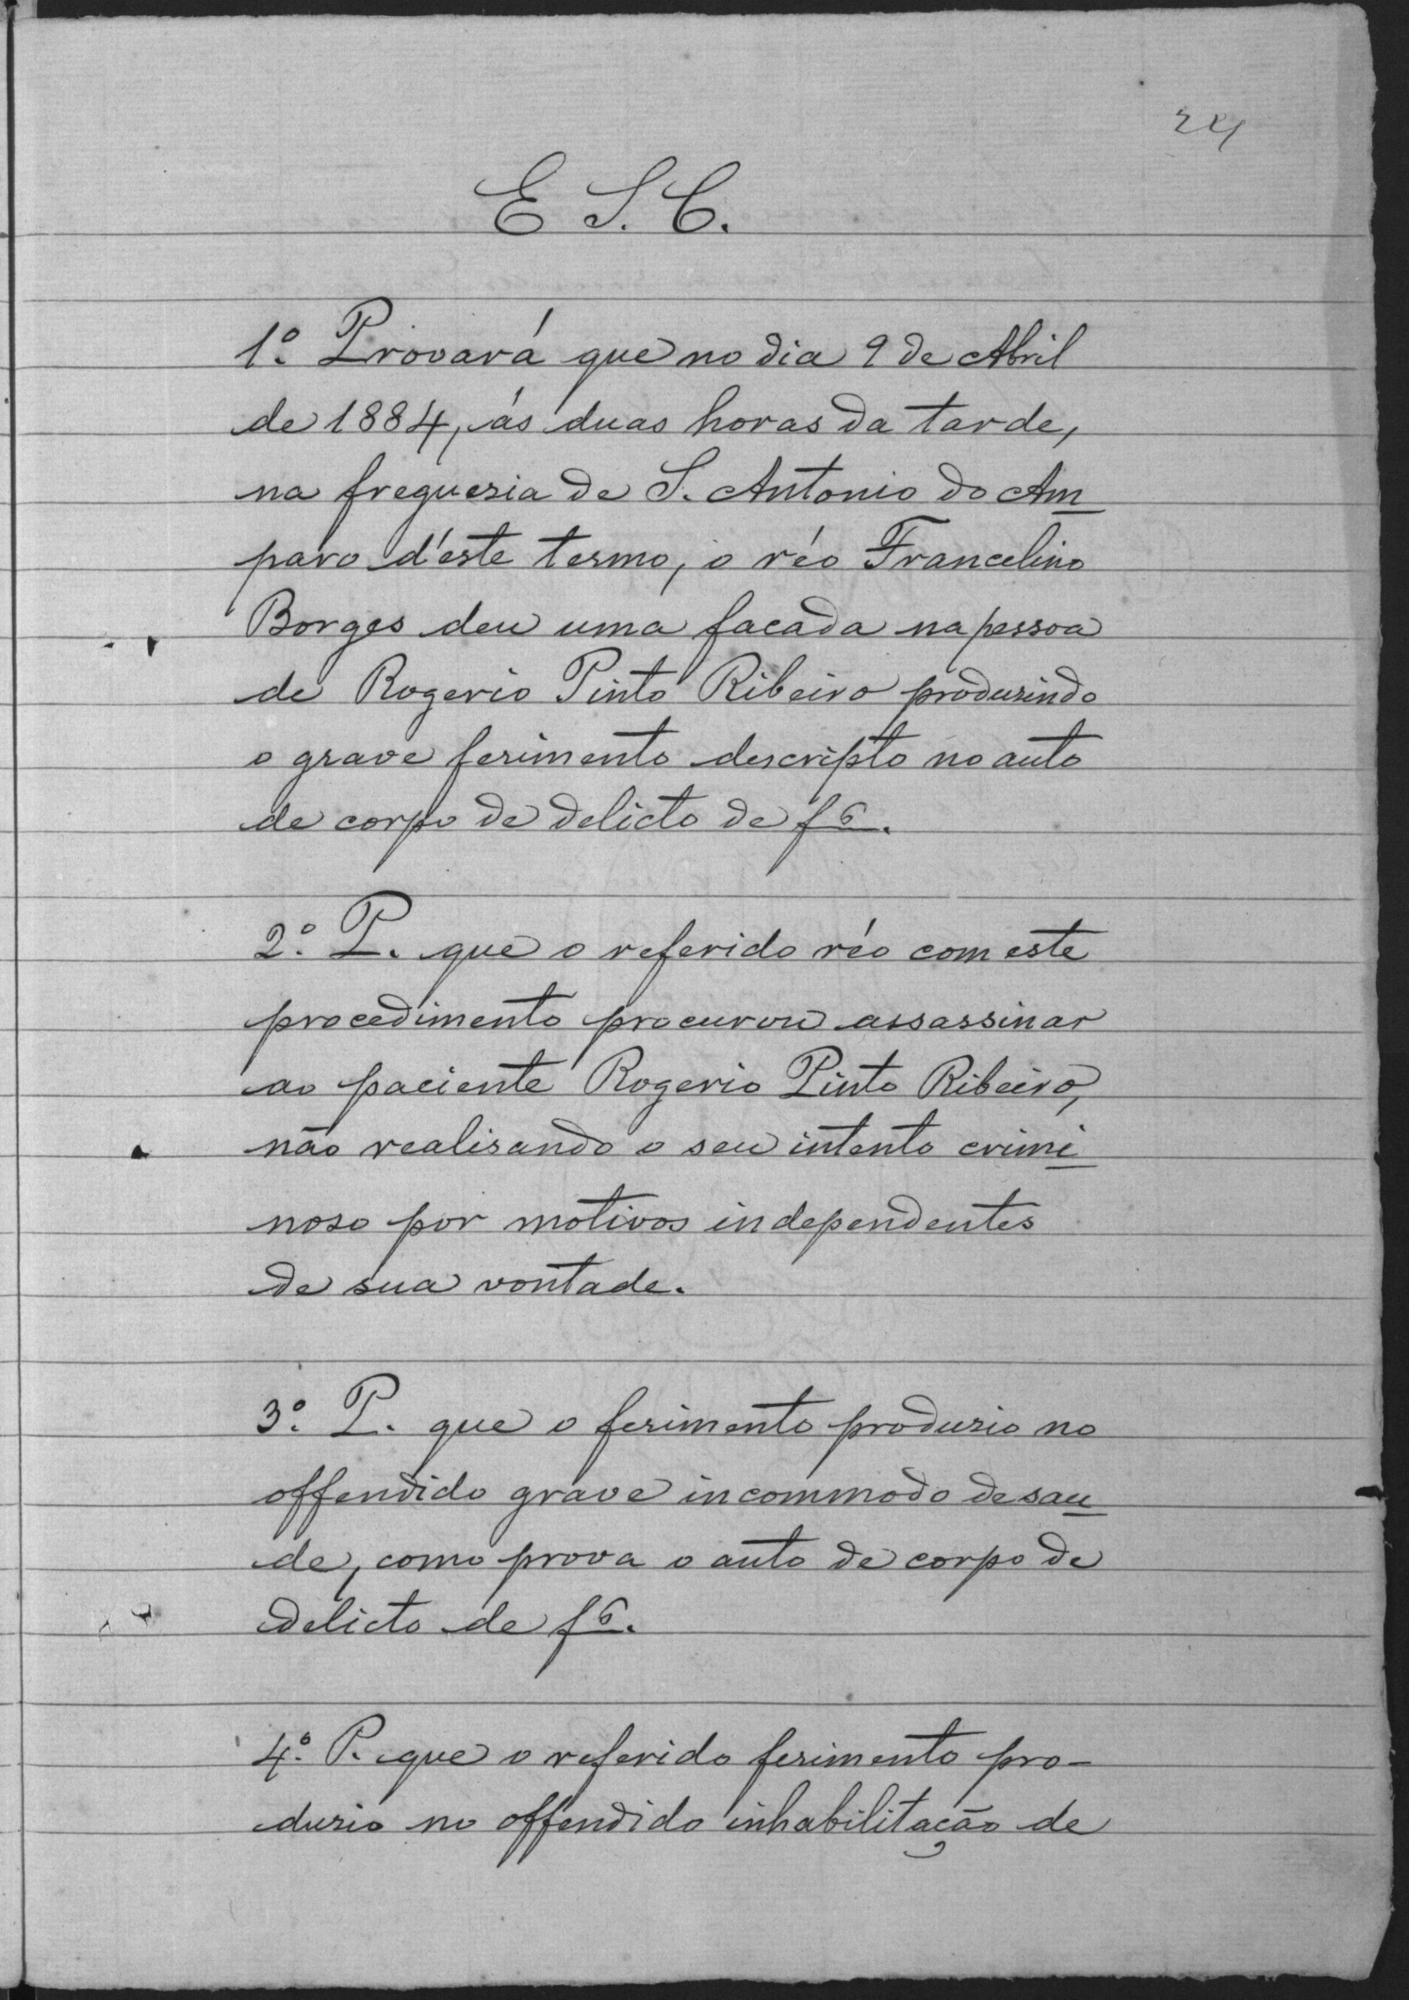 24
E S. C.
1º. Provará que no dia 9 de Abril
de 1884, ás duas horas da tarde,
na freguesia de S. Antonio do Am
paro d'éste termo, o réo Francelino
Borges deu uma facada na pessoa
de Rogerio Pinto Ribeiro produzindo
o grave ferimento descripto no auto
de corpo de delicto de f 6.
2º. P. que o referido réo com este
procedimento procurou assassinar
ao paciente Rogerio Pinto Ribeiro,
não realisando o seu intento crimi
noso por motivos independentes
de sua vontade.
3º. P. que o ferimento produzio no
offendido grave incommodo de sau
de, como prova o auto de corpo de
delicto de f 6.
4º. P. que o referido ferimento pro-
duzio no offendido inhabilitação de